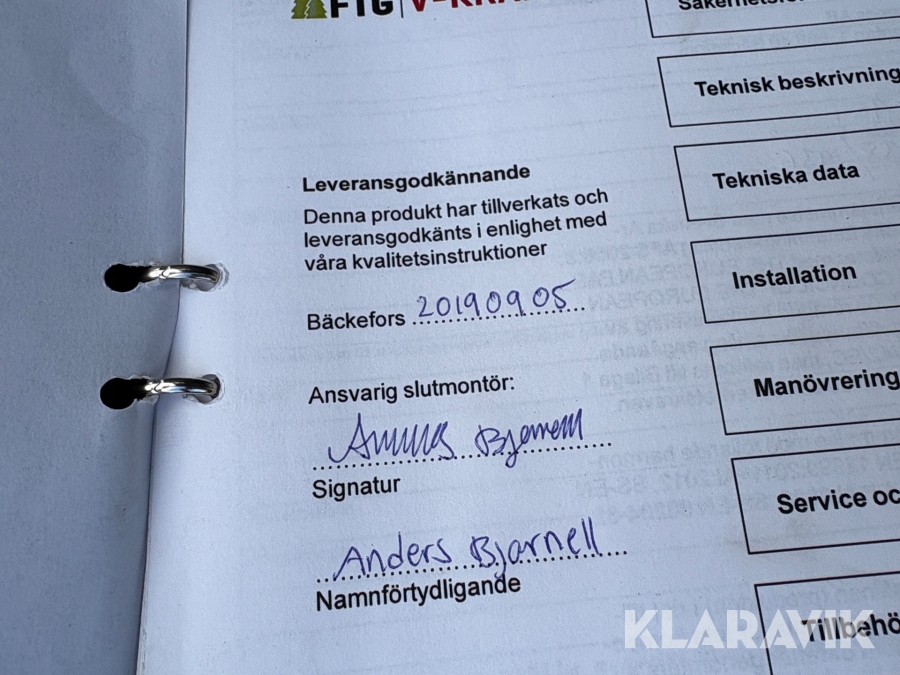 FTG
Teknisk beskrivning
Leveransgodkännande
Denna produkt har tillverkats och
leveransgodkänts i enlighet med
våra kvalitetsinstruktioner
Tekniska data
Bäckefors 20190905
Installation
Ansvarig slutmontör:
Manövrering
Signatur
Service oc
Anders Bjarnell
Namnförtydligande
Tillbehö
KLARAVIK